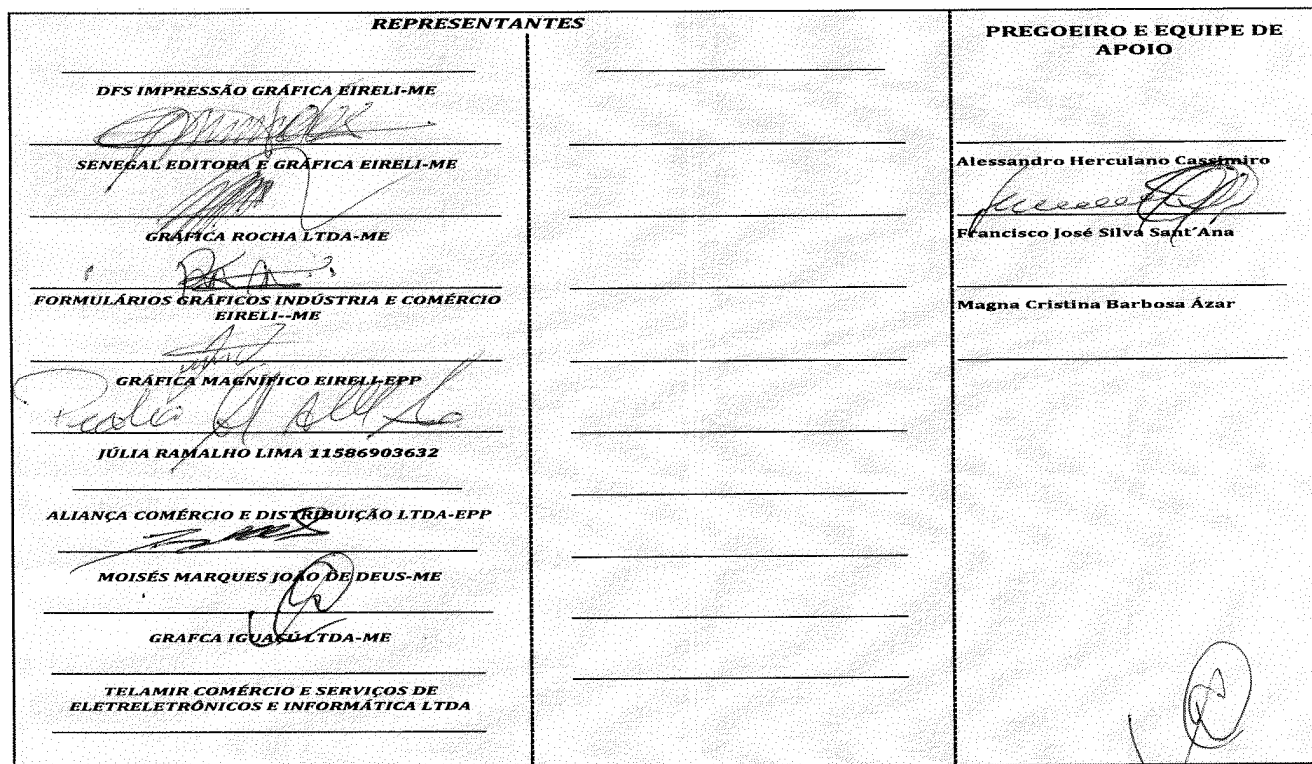 REPRESENTANTES
DFS IMPRESSÃO GRÁFICA EIRELI-ME
SENEGAL EDITORA E GRÁFICA EIRELI-ME
GRÁFICA ROCHA LTDA-ME
FORMULÁRIOS GRÁFICOS INDÚSTRIA E COMÉRCIO
EIRELI--ME
GRÁFICA MAGNÍFICO EIRELI-EPP
JÚLIA RAMALHO LIMA 11586903632
ALIANÇA COMÉRCIO E DISTRIBUIÇÃO LTDA-EPP
MOISÉS MARQUES JOÃO DE DEUS-ME
GRAFCA IGUAÇÚ LTDA-ME
TELAMIR COMÉRCIO E SERVIÇOS DE
ELETRELETRÔNICOS E INFORMÁTICA LTDA
PREGOEIRO E EQUIPE DE
APOIO
Alessandro Herculano Cassimiro
Francisco José Silva Sant´Ana
Magna Cristina Barbosa Ázar